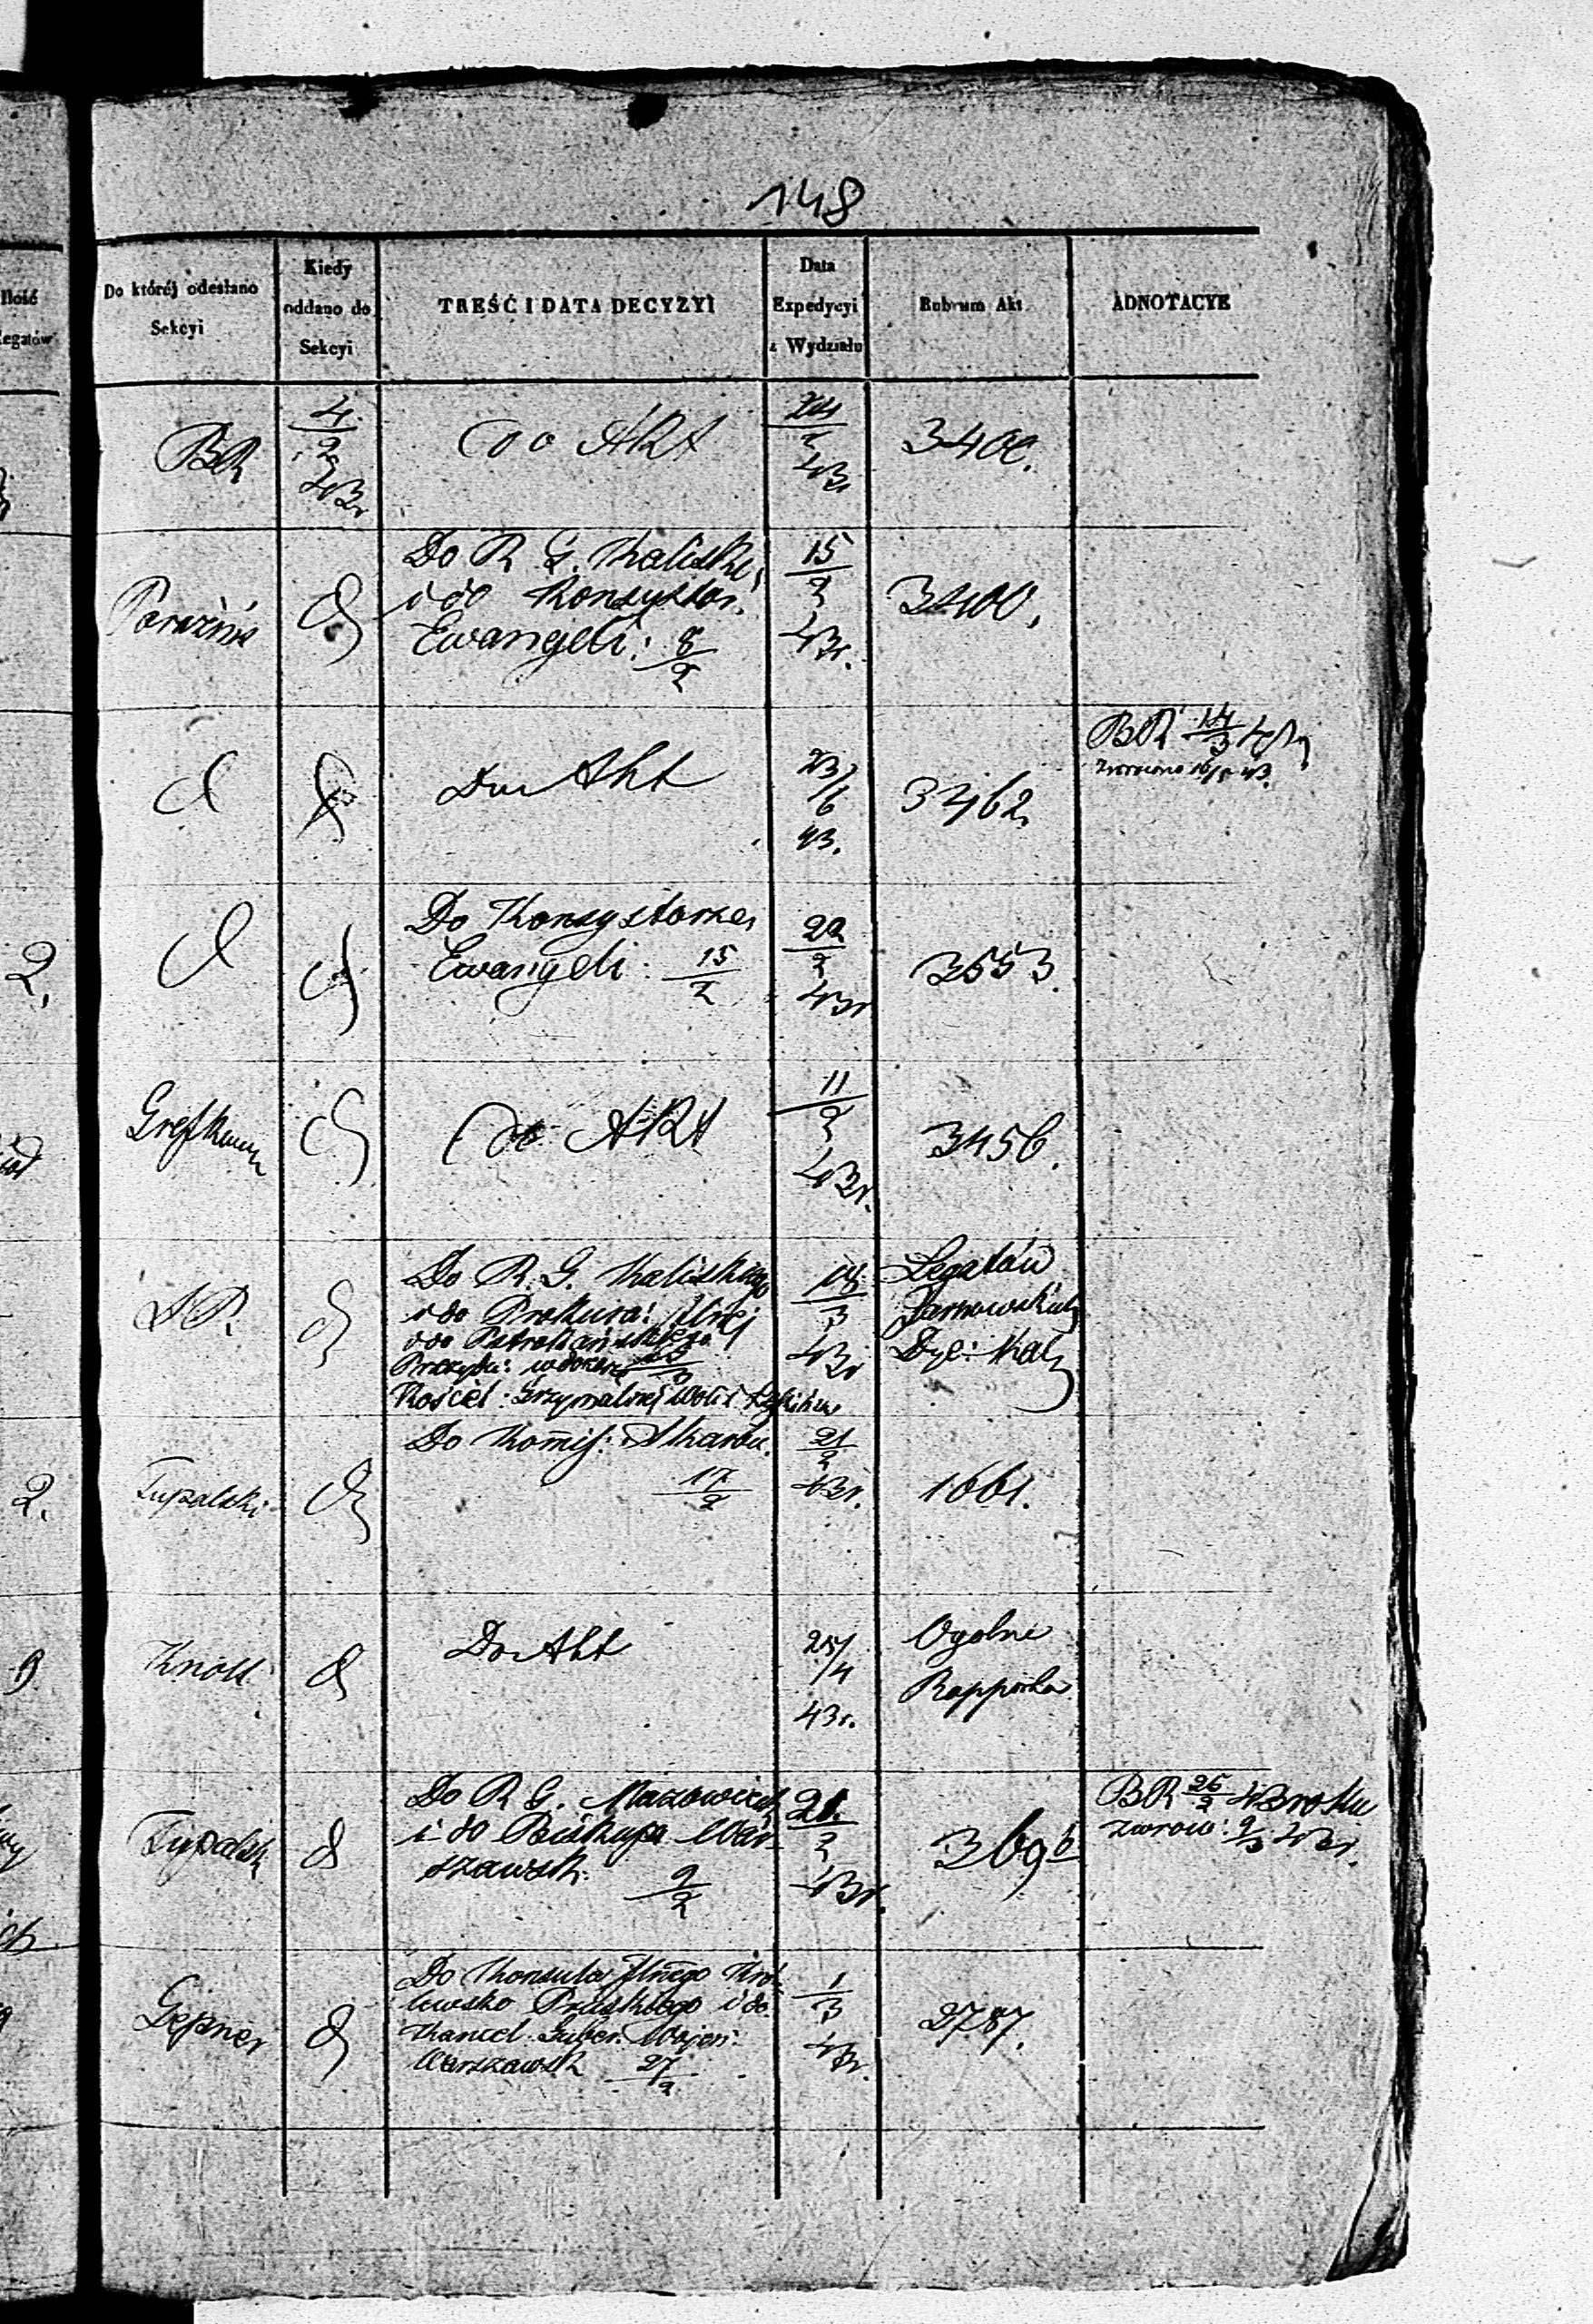 148
Ilość
Legatów
Do której odesłano
Sekcyi
Kiedy
oddano do
Sekcyi
TREŚĆ I DATA DECYZYI
Data
Expedycyi
z Wydziału
Rubrum Akt
ADNOTACYE
BR
4/2
43r
Do Akt
2
43r
3400.
Do R. G. Kaliskie
i do Konsystor:
Ewangeli: 8/2
15/2
43r.
3400.
Do Akt
23/6
43.
3462.
BR 14/3 43r
zwrócono 43.
2.
Do Konsystorza
Ewangeli: 15/2
22/2
43r
3553.
Do Akt
11/2
43r.
3456.
SP.
Do R. G. Kaliskiego
i do Prokura: Jlnej
i do
Kościel: Grzymalnej Woli i
18/3
43r
Legatów
Dye: Kal
2.
Tupalski
Do Kommis: Skarbu.
17/2
21/2
43r.
1661.
9
Knoll
Do Akt
25/4
43r.
Ogolne
Rapporta
Tupalski
Do R. G. Mazowieck
i do Biskupa War-
szawsk: 9/2
21/2
43r.
3696
BR 26/2 43 roku
zwróco: 9/3 43r.
Gepner
Do Konsula Jlnego Kró-
lewsko Pruskiego i do
Kancel. Guber. Wojen:
Warszawsk 27/2
1/3
43r.
2787.